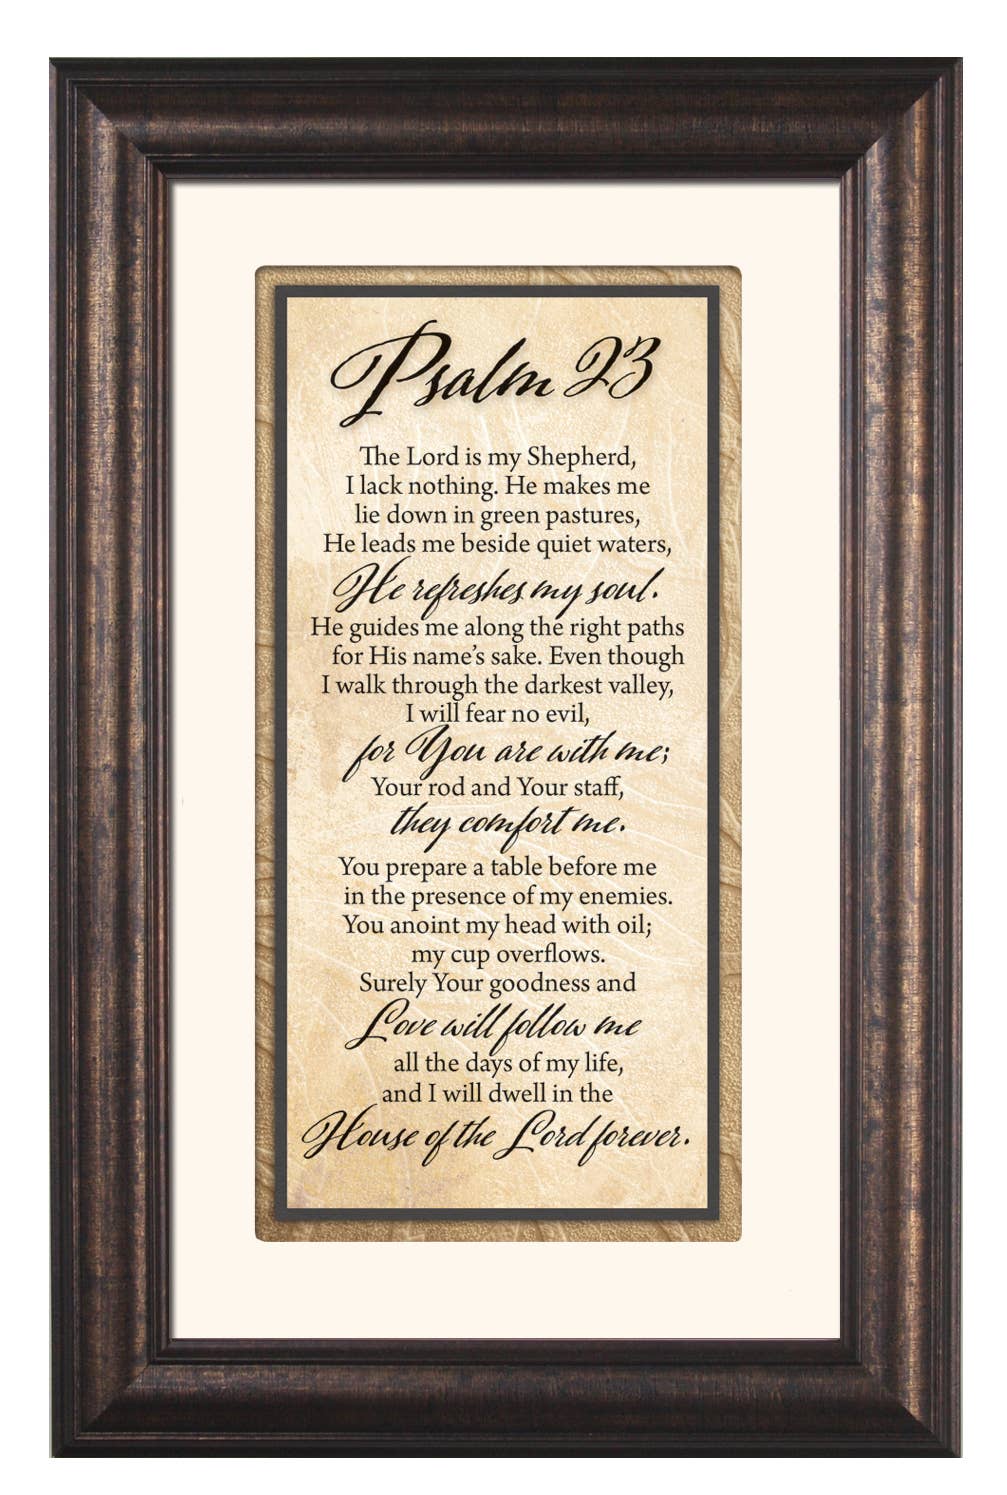 Psalm 23
The Lord is my Shepherd,
I lack nothing. He makes me
lie down in green pastures,
He leads me beside quiet waters,
He refreshes my soul.
He guides me along the right paths
for His name’s sake. Even though
I walk through the darkest valley,
I will fear no evil,
for You are with me;
Your rod and Your staff,
they comfort me.
You prepare a table before me
in the presence of my enemies.
You anoint my head with oil;
my cup overflows.
Surely Your goodness and
Love will follow me
all the days of my life,
and I will dwell in the
House of the Lord forever.